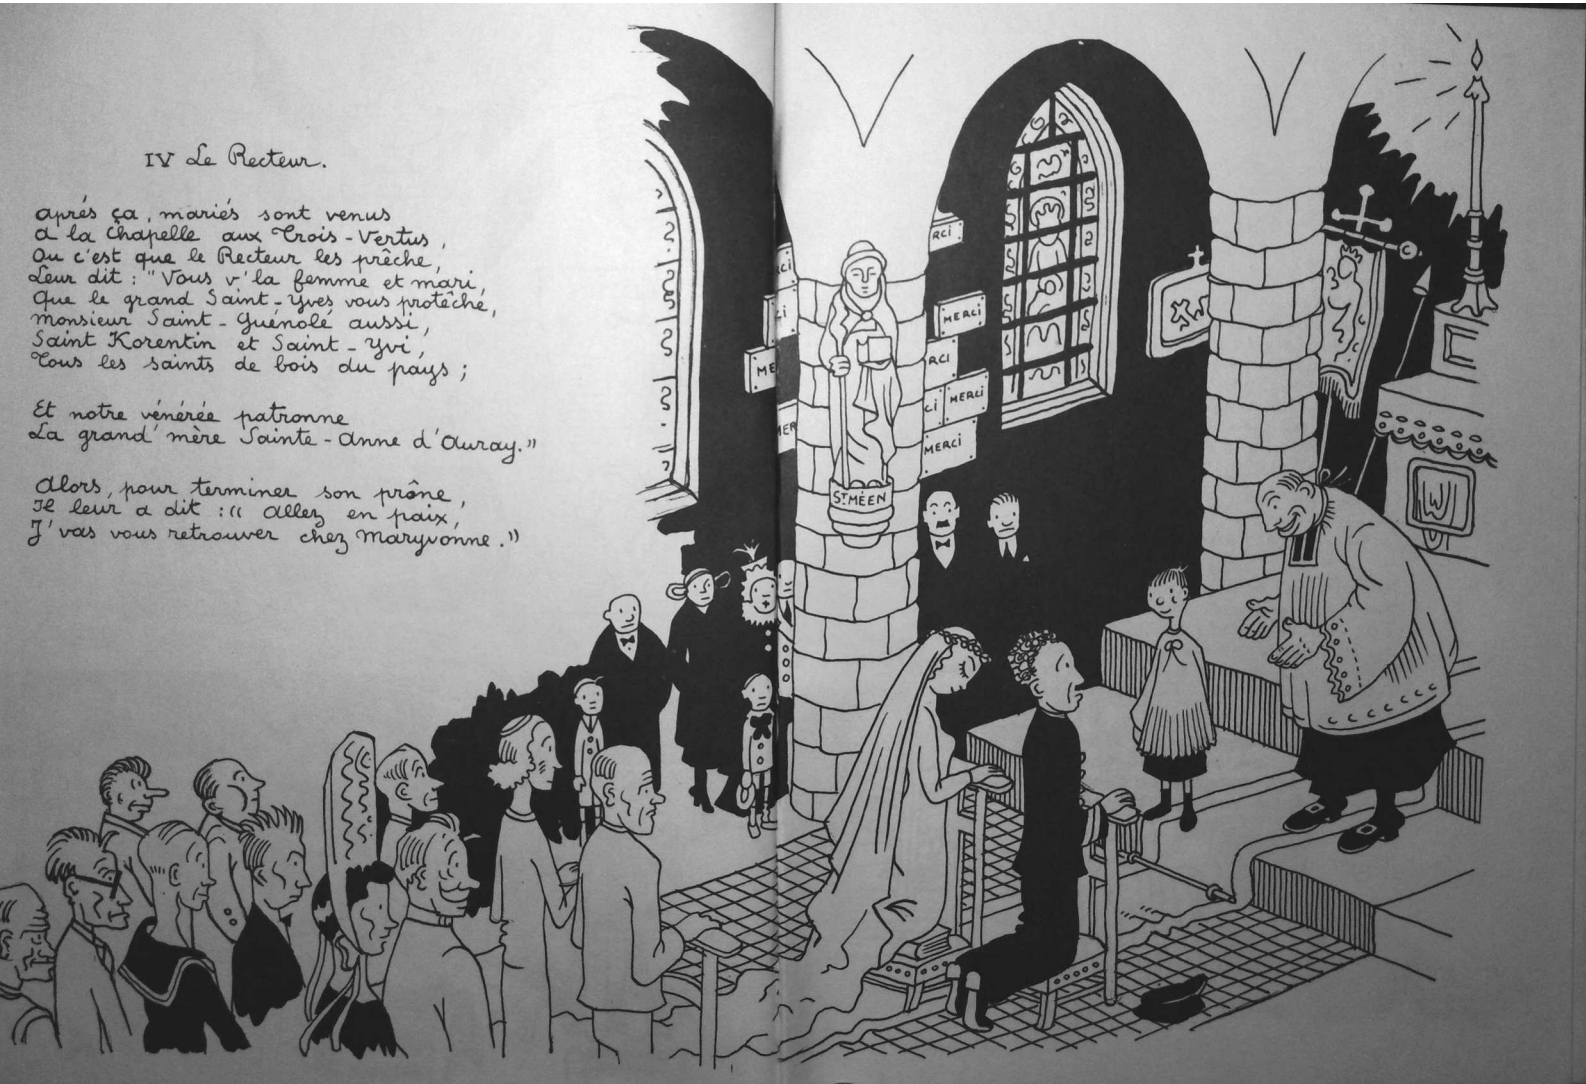 IV Le Recteur.
aprés ça, mariés sont venus
a la Chapelle aux Trois-Vertus,
Ou c'est que le Recteur les prêche,
Leur dit : "Vous v'la femme et mari,
Que le grand Saint-Yves vous protêche,
monsieur Saint-Guénolé aussi,
Saint Korentin et Saint-Yvi,
Tous les saints de bois du pays ;
Et notre vénérée patronne
La grand' mère Sainte-Anne d'Auray."
Alors, pour terminer son prône,
Il leur a dit : "Allez en paix,
J'vas vous retrouver chez Maryvonne."
RCI
CI
CI
ME
MER
RCI
MERCI
RCI
CI
MERCI
MERCI
ST MÉEN